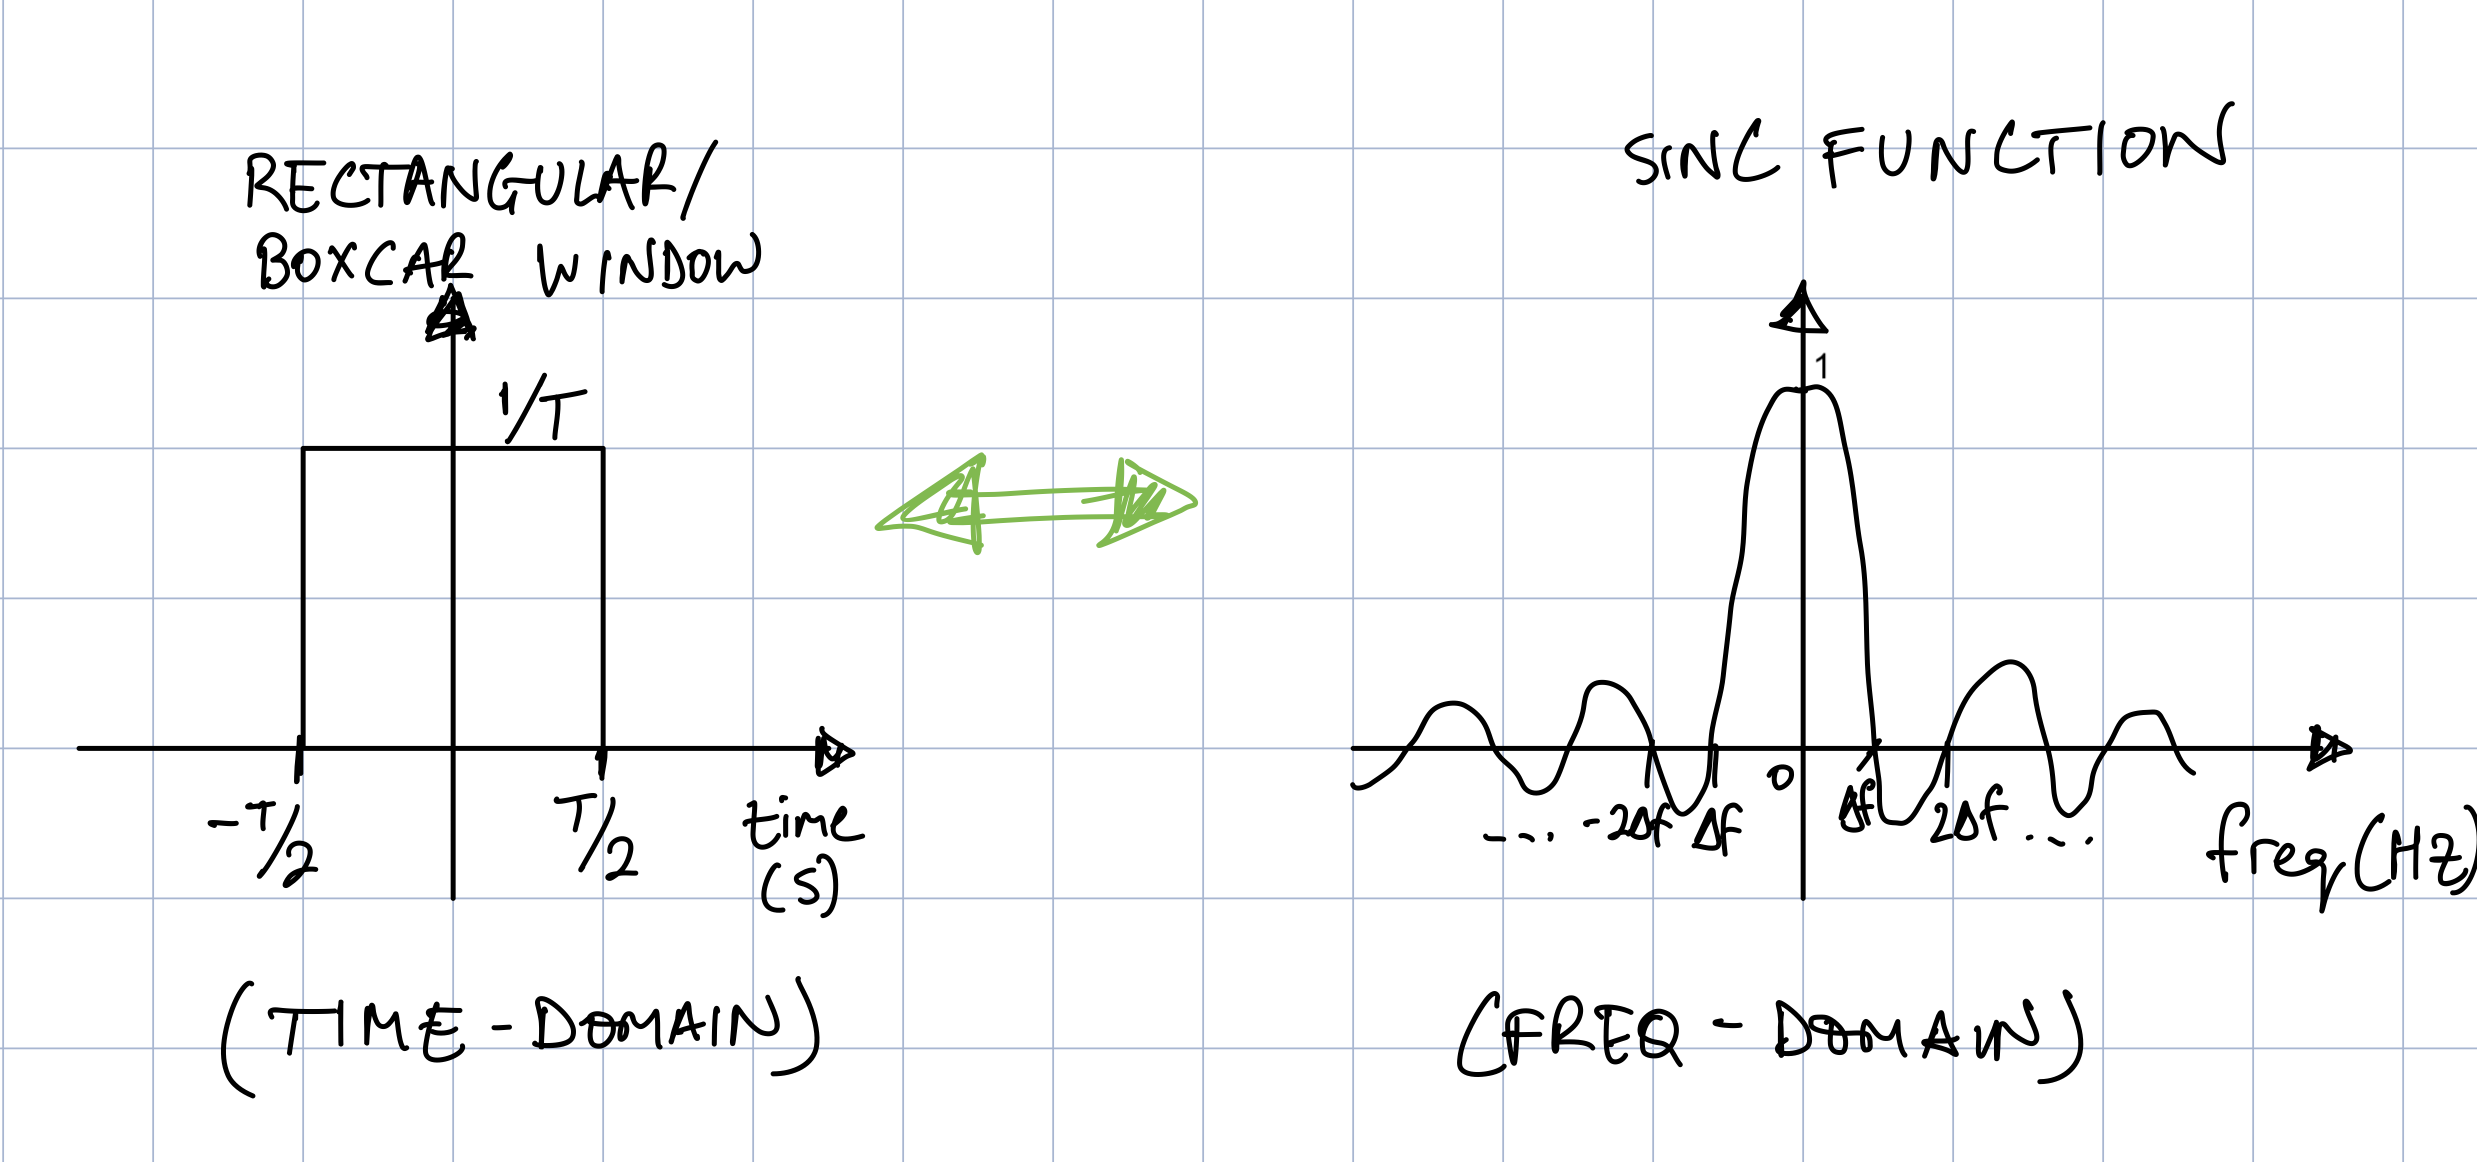 RECTANGULAR/
BOXCAR WINDOW
1/T
-T/2
T/2
time
(s)
(TIME-DOMAIN)
SINC FUNCTION
1
0
.... -2Δf Δf
Δf 2Δf ....
freq (Hz)
(FREQ-DOMAIN)